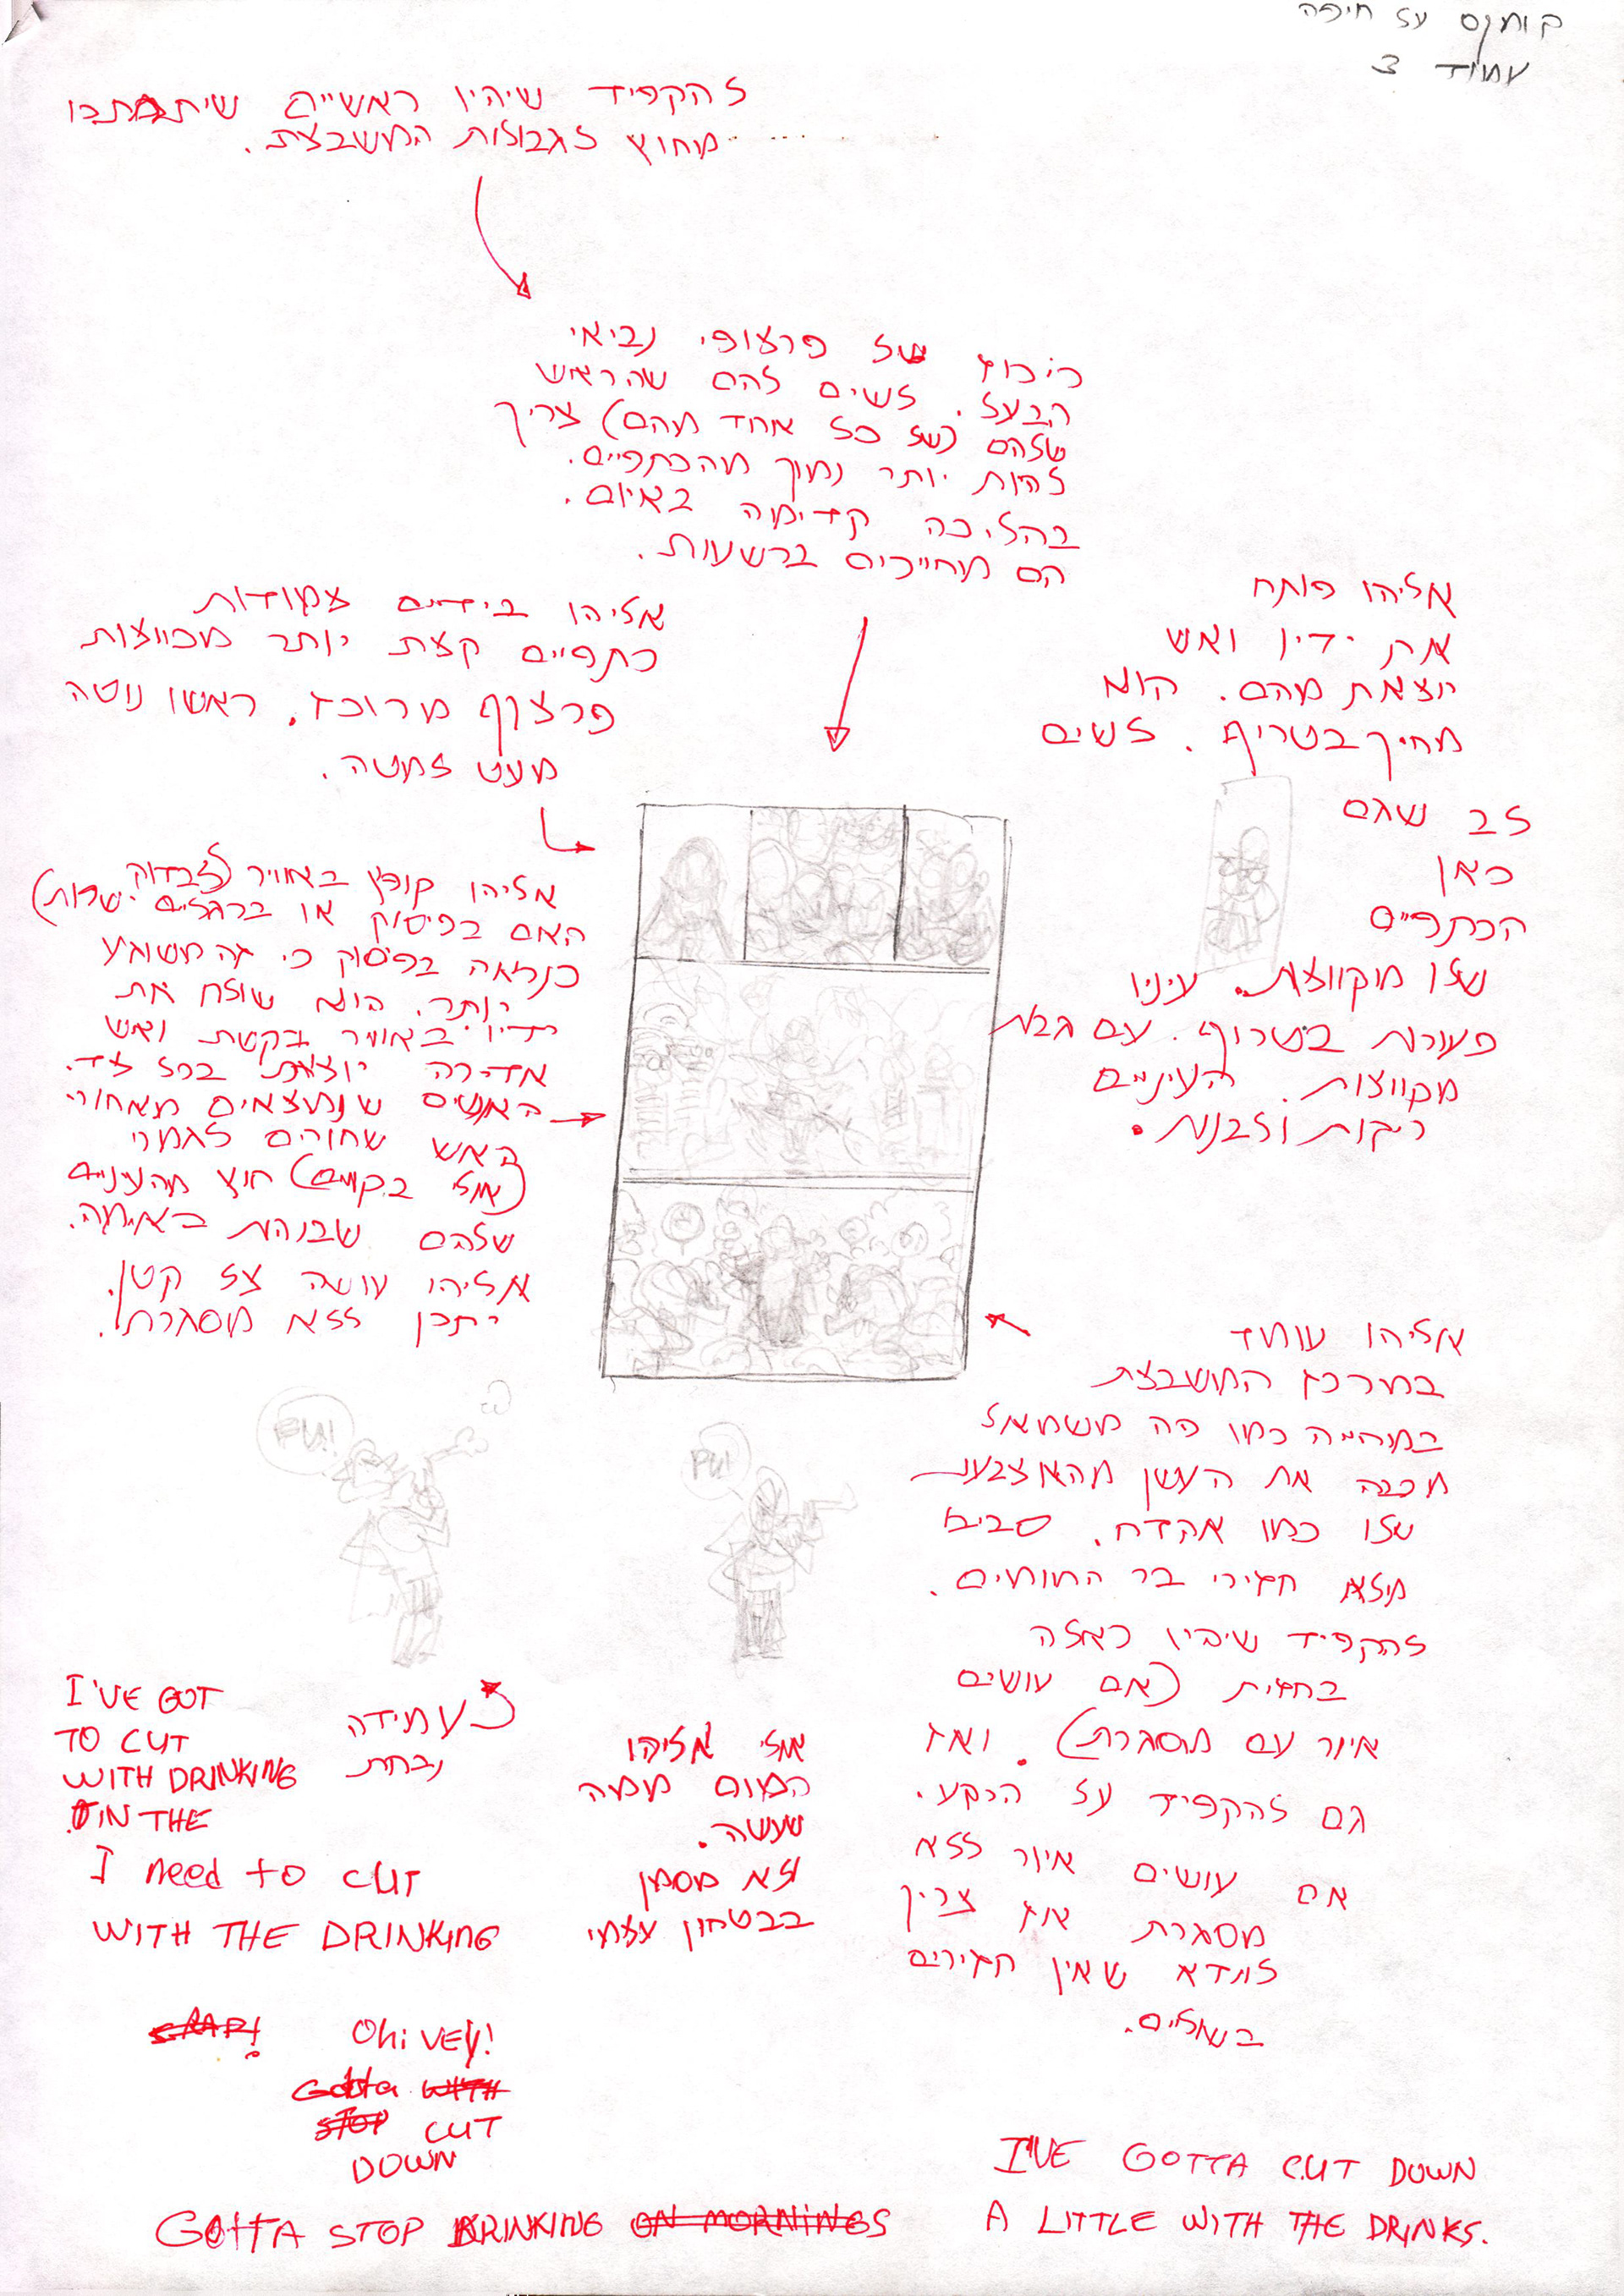 קומקס על חיפה
עמוד 3
להקפיד שיהיו ראשיים שיתחתכו
מחוץ לגבולות המשבצת.
ריכוז של פרצופי נביאי
הבעל. לשים להם שהראש
שלהם (של כל אחד מהם) צריך
להיות יותר נמוך מהכתפיים.
בהליכה קדימה באיום.
הם מחייכים ברשעות.
אליהו בידיים צמודות
כתפיים קצת יותר מכווצות
פרצוף מרוכז. ראשו נוטה
מעט למטה.
אליהו פותח
את ידיו ואש
יוצאת מהם. הוא
מחיך בטריף. לשים
לב שגם
כאן
הכתפיים
שלו מקווצת. עיניו
פעורות בטרוף. עם גבות
מקווצות. העיניים
ריקות ולבנות.
אליהו קופץ באוויר (לבדוק
האם בפיסוק או ברגליים ישרות)
כנראה בפיסוק כי זה משוגע
יותר. הוא שולח את
ידיו באוויר בקשת ואש
אדירה יוצאת בכל צד.
האנשים שנמצאים מאחורי
האש שחורים לגמרי
(אולי בקווים) חוץ מהעיניים
שלהם שבוהות באימה.
אליהו עושה צל קטן.
יתכן ללא מסגרת!
אליהו עומד
במרכז המשבצת
במחייה כמו פה משמאל
מכבה את העשן מהאצבע
שלו כמו אקדח. סביבו
מלא חזירי בר המומים.
להקפיד שיהיו כאלה
בחזית (אם עושים
איור עם מסגרת). ואז
גם להקפיד על הרקע.
אם עושים איור ללא
מסגרת אז צריך
לוודא שאין חזירים
בשוליים.
PU!
PU!
עמידה
נבחרת
אולי אליהו
המום ממה
שעשה.
לא מסמן
בבטחון עצמי
I'VE GOT
TO CUT
WITH DRINKING
IN THE
I need to CUT
WITH THE DRINKING
CRAP!
Ohi VEY!
Gotta WITH
STOP CUT
DOWN
GOTTA STOP DRINKING ON MORNINGS
I'VE GOTTA CUT DOWN
A LITTLE WITH THE DRINKS.